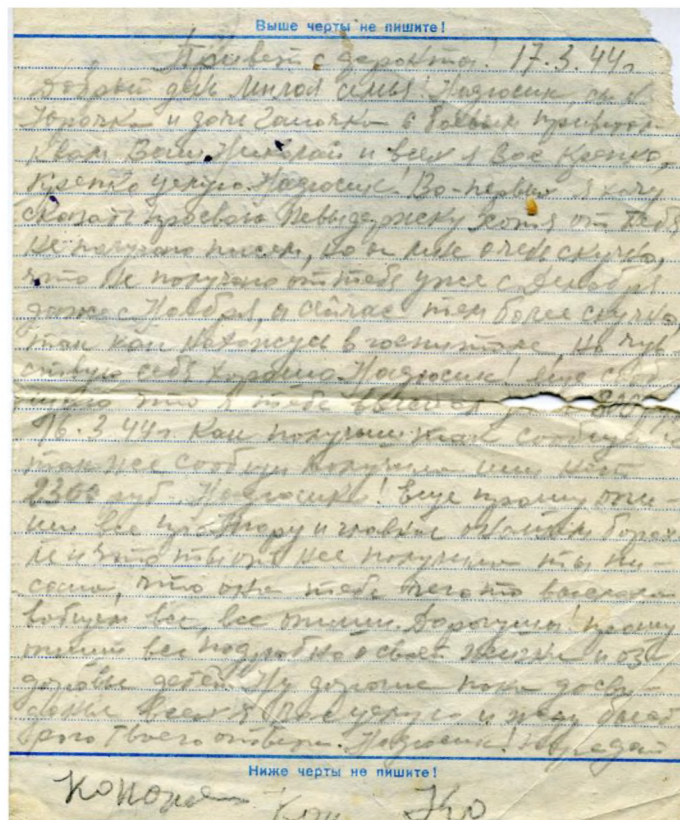 Выше черты не пишите!
Привет с фронта! 17.3.44г
Добрый день милая семья! Надюсик, сын
Юрочка и дочь с боевым приветом
к Вам Ваш Николай и всех я Вас крепко,
крепко целую. Надюсик! Во-первых я хочу
сказать про свою невыдержку хотя от тебя
не получаю писем, но и мне очень скучно,
что не получаю от тебя уже с декабря
даже с Ноября, а сейчас тем более скучно,
так как нахожусь в госпитале, но чув-
ствую себя хорошо. Надюсик! еще сооб-
щаю что я тебе выслал 800
16.3.44г как получишь так сообщи
так же сообщи получила или нет
2300 руб. Надюсик! Еще прошу опи-
ши все про и главное
и что ты от нее получила ты пи-
сала, что она тебе чего-то выслала
вобщем все, все опиши. Дорогуша! прошу
опиши все подробно о своей жизни и о з-
доровье детей. Ну дорогие пока до сви-
дания всех я Вас целую и жду быст-
рого твоего ответа. Надюсик! Передай
Ниже черты не пишите!